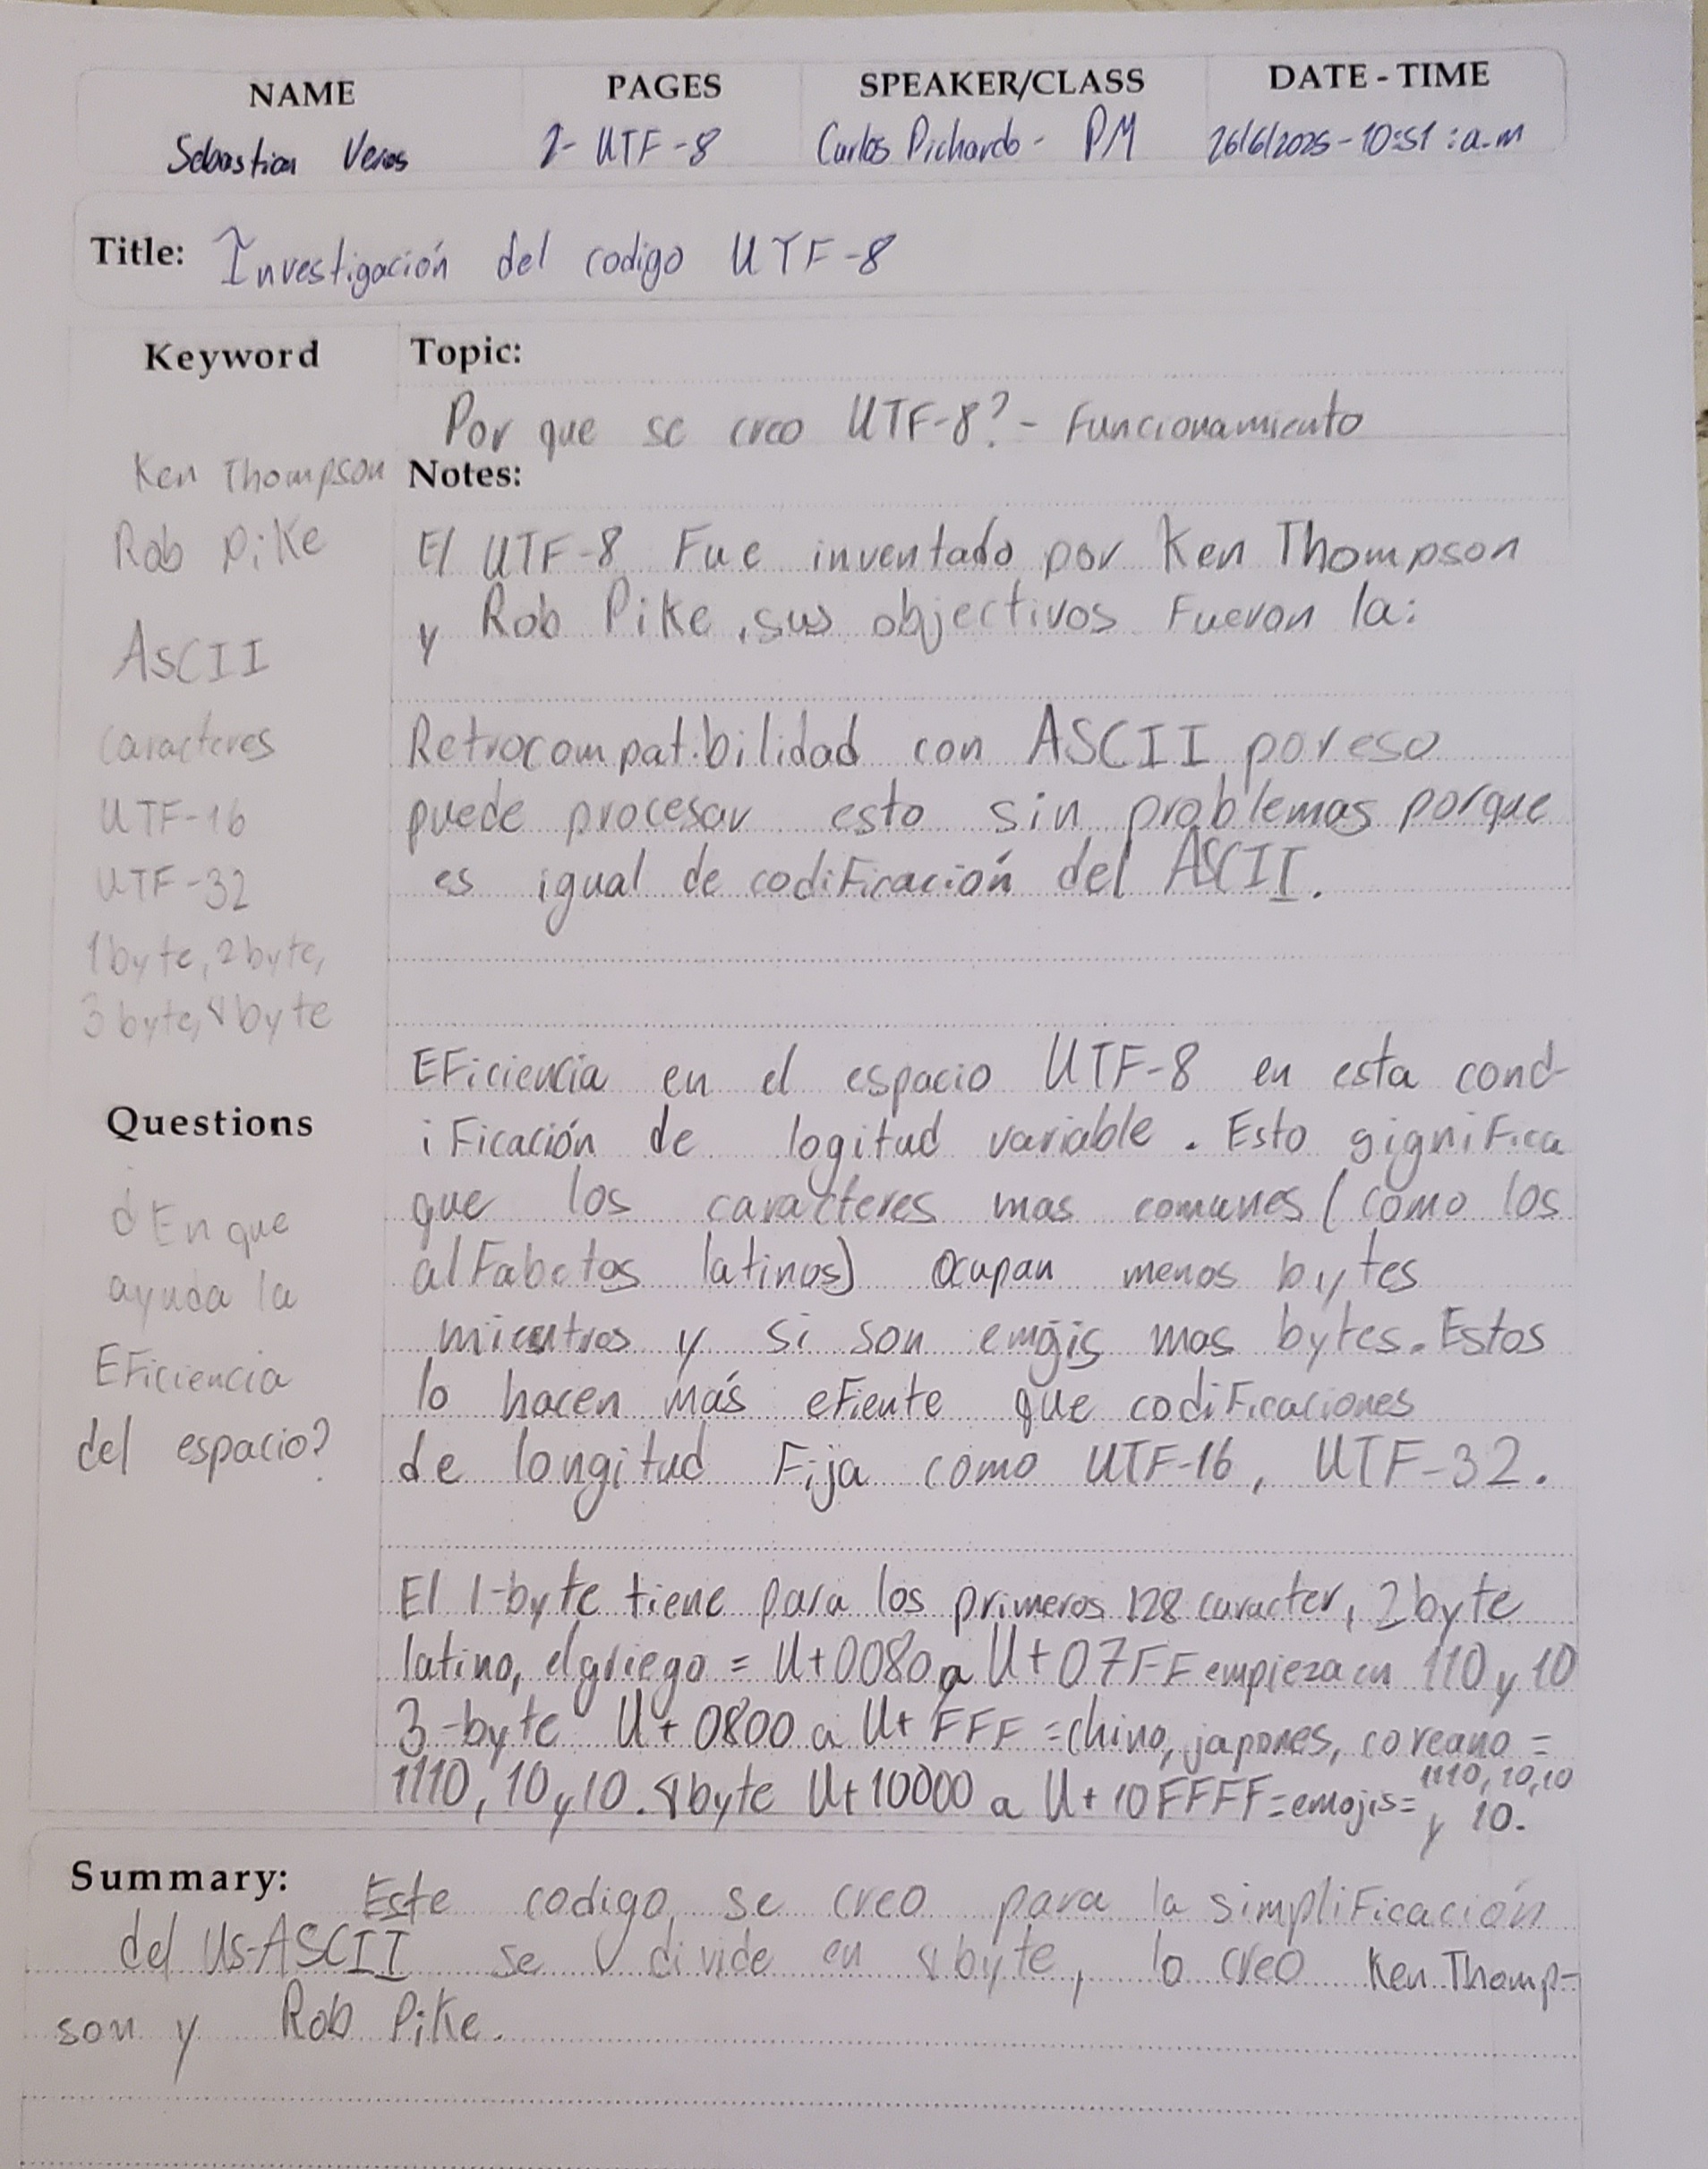 NAME PAGES SPEAKER/CLASS DATE - TIME
Sebastian Veras 2- UTF-8 Carlos Pichardo - PM 26/6/2025 - 10:51 : a.m
Title: Investigación del codigo UTF-8
Keyword
Ken Thompson
Rob Pike
ASCII
caracteres
UTF-16
UTF-32
1byte, 2byte,
3 byte, 4byte
Questions
¿En que
ayuda la
Eficiencia
del espacio?
Topic:
Por que se creo UTF-8? - Funcionamiento
Notes:
El UTF-8 Fue inventado por Ken Thompson
y Rob Pike, sus objectivos Fueron la:
Retrocompatibilidad con ASCII por eso
puede procesar esto sin problemas porque
es igual de codificación del ASCII.
Eficiencia en el espacio UTF-8 en esta cond-
ificación de logitud variable. Esto gignifica
que los caracteres mas comunes (como los
alfabetos latinos) ocupan menos bytes
mientros y si son emojis mas bytes. Estos
lo hacen más efiente que codificaciones
de longitud Fija como UTF-16, UTF-32.
El 1-byte tiene para los primeros 128 caracter, 2byte
latino, el griego = U+0080 a U+07FF empieza en 110 y 10
3-byte U+0800 a U+FFF = chino, japones, coreano =
1110, 10 y 10. 4byte U+10000 a U+10FFFF = emojis = 1110, 10, 10
y 10.
Summary: Este codigo se creo para la simplificación
del US-ASCII se divide en 4byte, lo creo Ken Thomp-
son y Rob Pike.